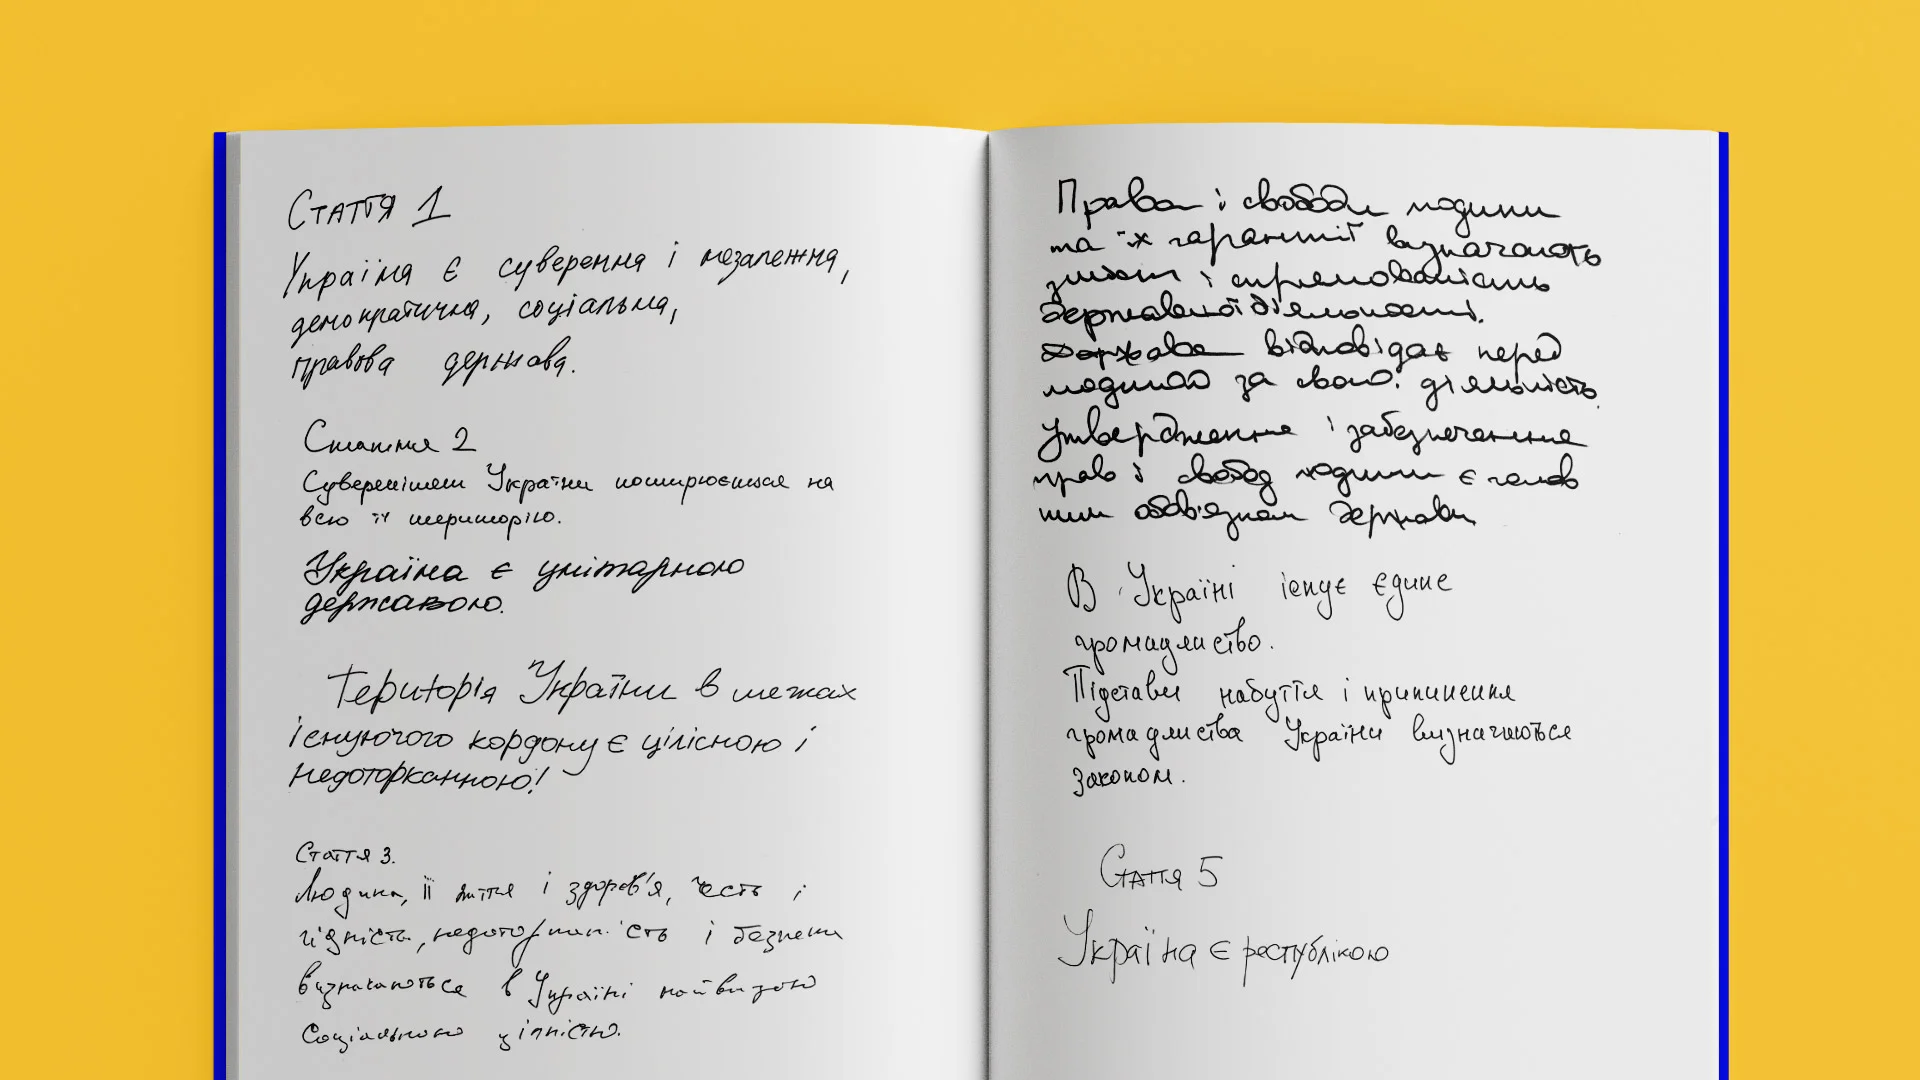 Стаття 1
Україна є суверенна і незалежна,
демократична, соціальна,
правова держава.
Стаття 2
Суверенітет України поширюється на
всю її територію.
Україна є унітарною
державою.
Територія України в межах
існуючого кордону є цілісною і
недоторканною!
Стаття 3.
Людина, її життя і здоров'я, честь і
гідність, недоторканність і безпека
визнаються в Україні найвищою
соціальною цінністю.
Права і свободи людини
та їх гарантії визначають
зміст і спрямованість
державної діяльності.
Держава відповідає перед
людиною за свою діяльність.
Утвердження і забезпечення
прав і свобод людини є голов
ним обов'язком держави
В Україні існує єдине
громадянство.
Підстави набуття і припинення
громадянства України визначаються
законом.
Стаття 5
Україна є республікою